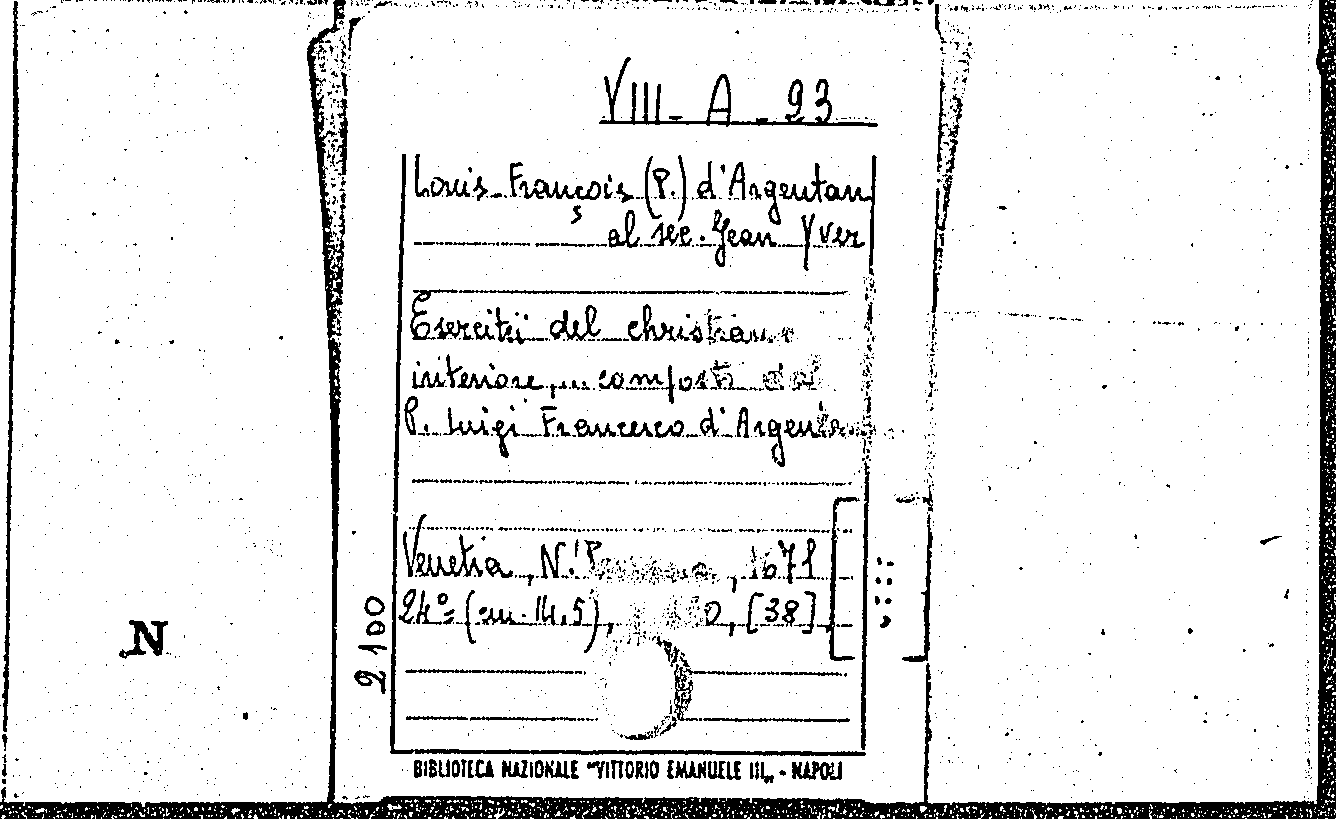 VIII - A - 23
Louis-François (P.) d'Argentan
al sec. Jean Yver
Esercitii del christiano
interiore,... composti dal
P. Luigi Francesco d'Argentan
Venetia, N.' , 1671
24° (cm. 14,5), , [38]
2100
N
BIBLIOTECA NAZIONALE "VITTORIO EMANUELE III„ - NAPOLI